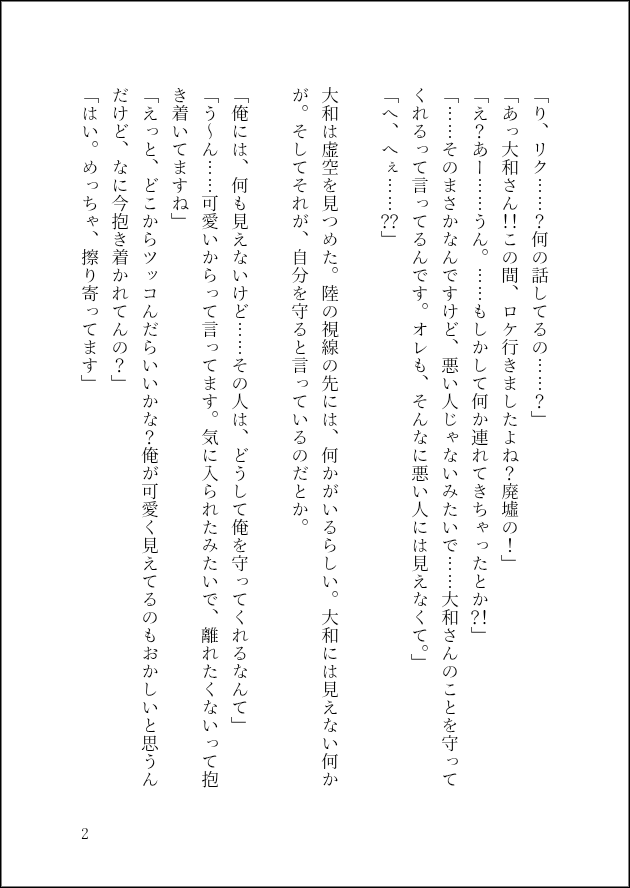 「り、リク……？何の話してるの……？」
「あっ大和さん!!この間、ロケ行きましたよね？廃墟の！」
「え？あー……うん。……もしかして何か連れてきちゃったとか?!」
「……そのまさかなんですけど、悪い人じゃないみたいで……大和さんのことを守って
くれるって言ってるんです。オレも、そんなに悪い人には見えなくて。」
「へ、へぇ……??」
大和は虚空を見つめた。陸の視線の先には、何かがいるらしい。大和には見えない何か
が。そしてそれが、自分を守ると言っているのだとか。
「俺には、何も見えないけど……その人は、どうして俺を守ってくれるなんて」
「う～ん……可愛いからって言ってます。気に入られたみたいで、離れたくないって抱
き着いてますね」
「えっと、どこからツッコんだらいいかな？俺が可愛く見えてるのもおかしいと思うん
だけど、なに今抱き着かれてんの？」
「はい。めっちゃ、擦り寄ってます」
2